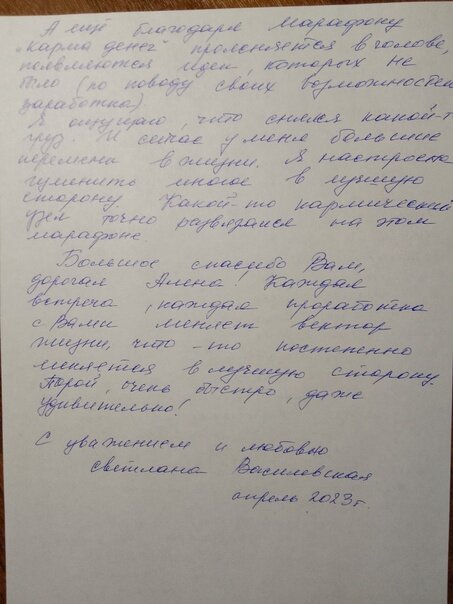 А ещё благодаря Марафону
"Карма денег" проясняется в голове,
появляются идеи, которых не
было (по поводу своих возможностей
заработка)
Я ощущаю, что снялся какой-т
груз И сейчас у меня большие
перемены в жизни. Я настроена
изменить многое в лучшую
сторону Какой-то кармический
узел точно развязался на этом
марафоне.
Большое спасибо Вам,
дорогая Алена! Каждая
встреча, каждая проработка
с Вами меняет вектор
жизни, что-то постепенно
меняется в лучшую сторону.
Порой, очень быстро, даже
удивительно!
С уважением и любовью
Светлана Василевская
апрель 2023г.